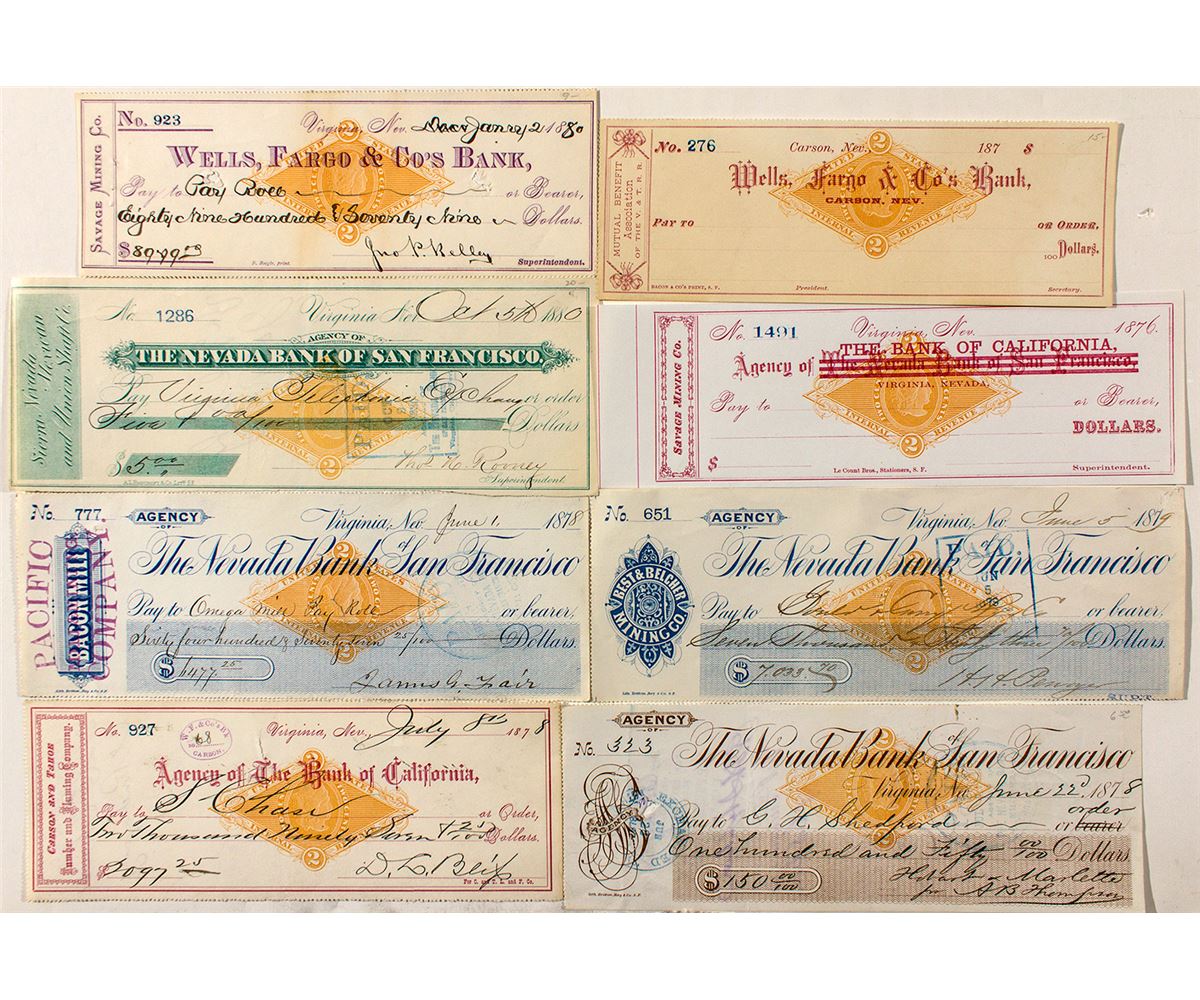 9-
SAVAGE MINING CO.
No. 923
Virginia, Nev. Jan'ry 2 1880
WELLS, FARGO & CO'S BANK,
Pay to Pay Roll or Bearer,
Eighty Nine Hundred & Seventy Nine Dollars.
Jno P. Kelley
Superintendent.
15-
MUTUAL BENEFIT
Association
OF THE V. & T. R. R.
No. 276 Carson, Nev. 187 $
Wells, Fargo & Co's Bank,
CARSON, NEV.
PAY TO OR ORDER,
100 Dollars.
BACON & CO'S PRINT, S. F. President. Secretary.
UNITED STATES
INTERNAL REVENUE
2
20-
Sierra Nevada
Mexican
and Union Shaft Co.
No. 1286 Virginia Nev Oct 5th 1880
AGENCY OF
THE NEVADA BANK OF SAN FRANCISCO.
Pay Virginia Telephonic Exchange or order
Five Dollars
PAID
$5.00
Superintendent.
SAVAGE MINING CO.
No. 1491 Virginia, Nev. 1876.
THE BANK OF CALIFORNIA,
Agency of The Nevada Bank of San Francisco,
VIRGINIA, NEVADA,
Pay to or Bearer,
DOLLARS.
$
Le Count Bros., Stationers, S. F. Superintendent.
PACIFIC
BACON MILL
COMPANY.
No. 777. AGENCY OF Virginia, Nev June 1, 1878
The Nevada Bank of San Francisco
Pay to Omega Mill Pay Roll or bearer
Sixty four hundred & Seventy seven 25/100 Dollars.
$6477.25
James G. Fair
No. 651 AGENCY OF Virginia, Nev June 5 1879
The Nevada Bank of San Francisco
BEST & BELCHER
MINING CO.
Pay to or bearer.
Seven Thousand & Thirty three 70/100 Dollars.
$7.033.70
SUPT.
CARSON AND TAHOE
Lumber and Fluming Company.
No. 927 Virginia, Nev., July 8th 1878
W. F. & Co's Bk
CARSON.
Agency of The Bank of California,
Pay to or Order,
Two Thousand Ninety Seven & 25/100 Dollars.
$2097.25
D. L. Bliss
For C. and T. L. and F. Co.
AGENCY OF
No. 323 The Nevada Bank of San Francisco
Virginia, Nev June 22d 1878
AGENCY
Pay to G. H. Shedford or order bearer
One hundred and Fifty 00/100 Dollars
$150 00/100
A B Thompson